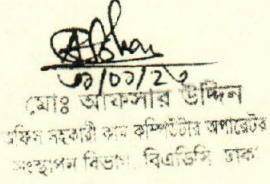 ৩১/০১/২৩
মোঃ আফসার উদ্দিন
অফিস সহকারী কাম কম্পিউটার অপারেটর
সংস্থাপন বিভাগ, বিএডিসি, ঢাকা